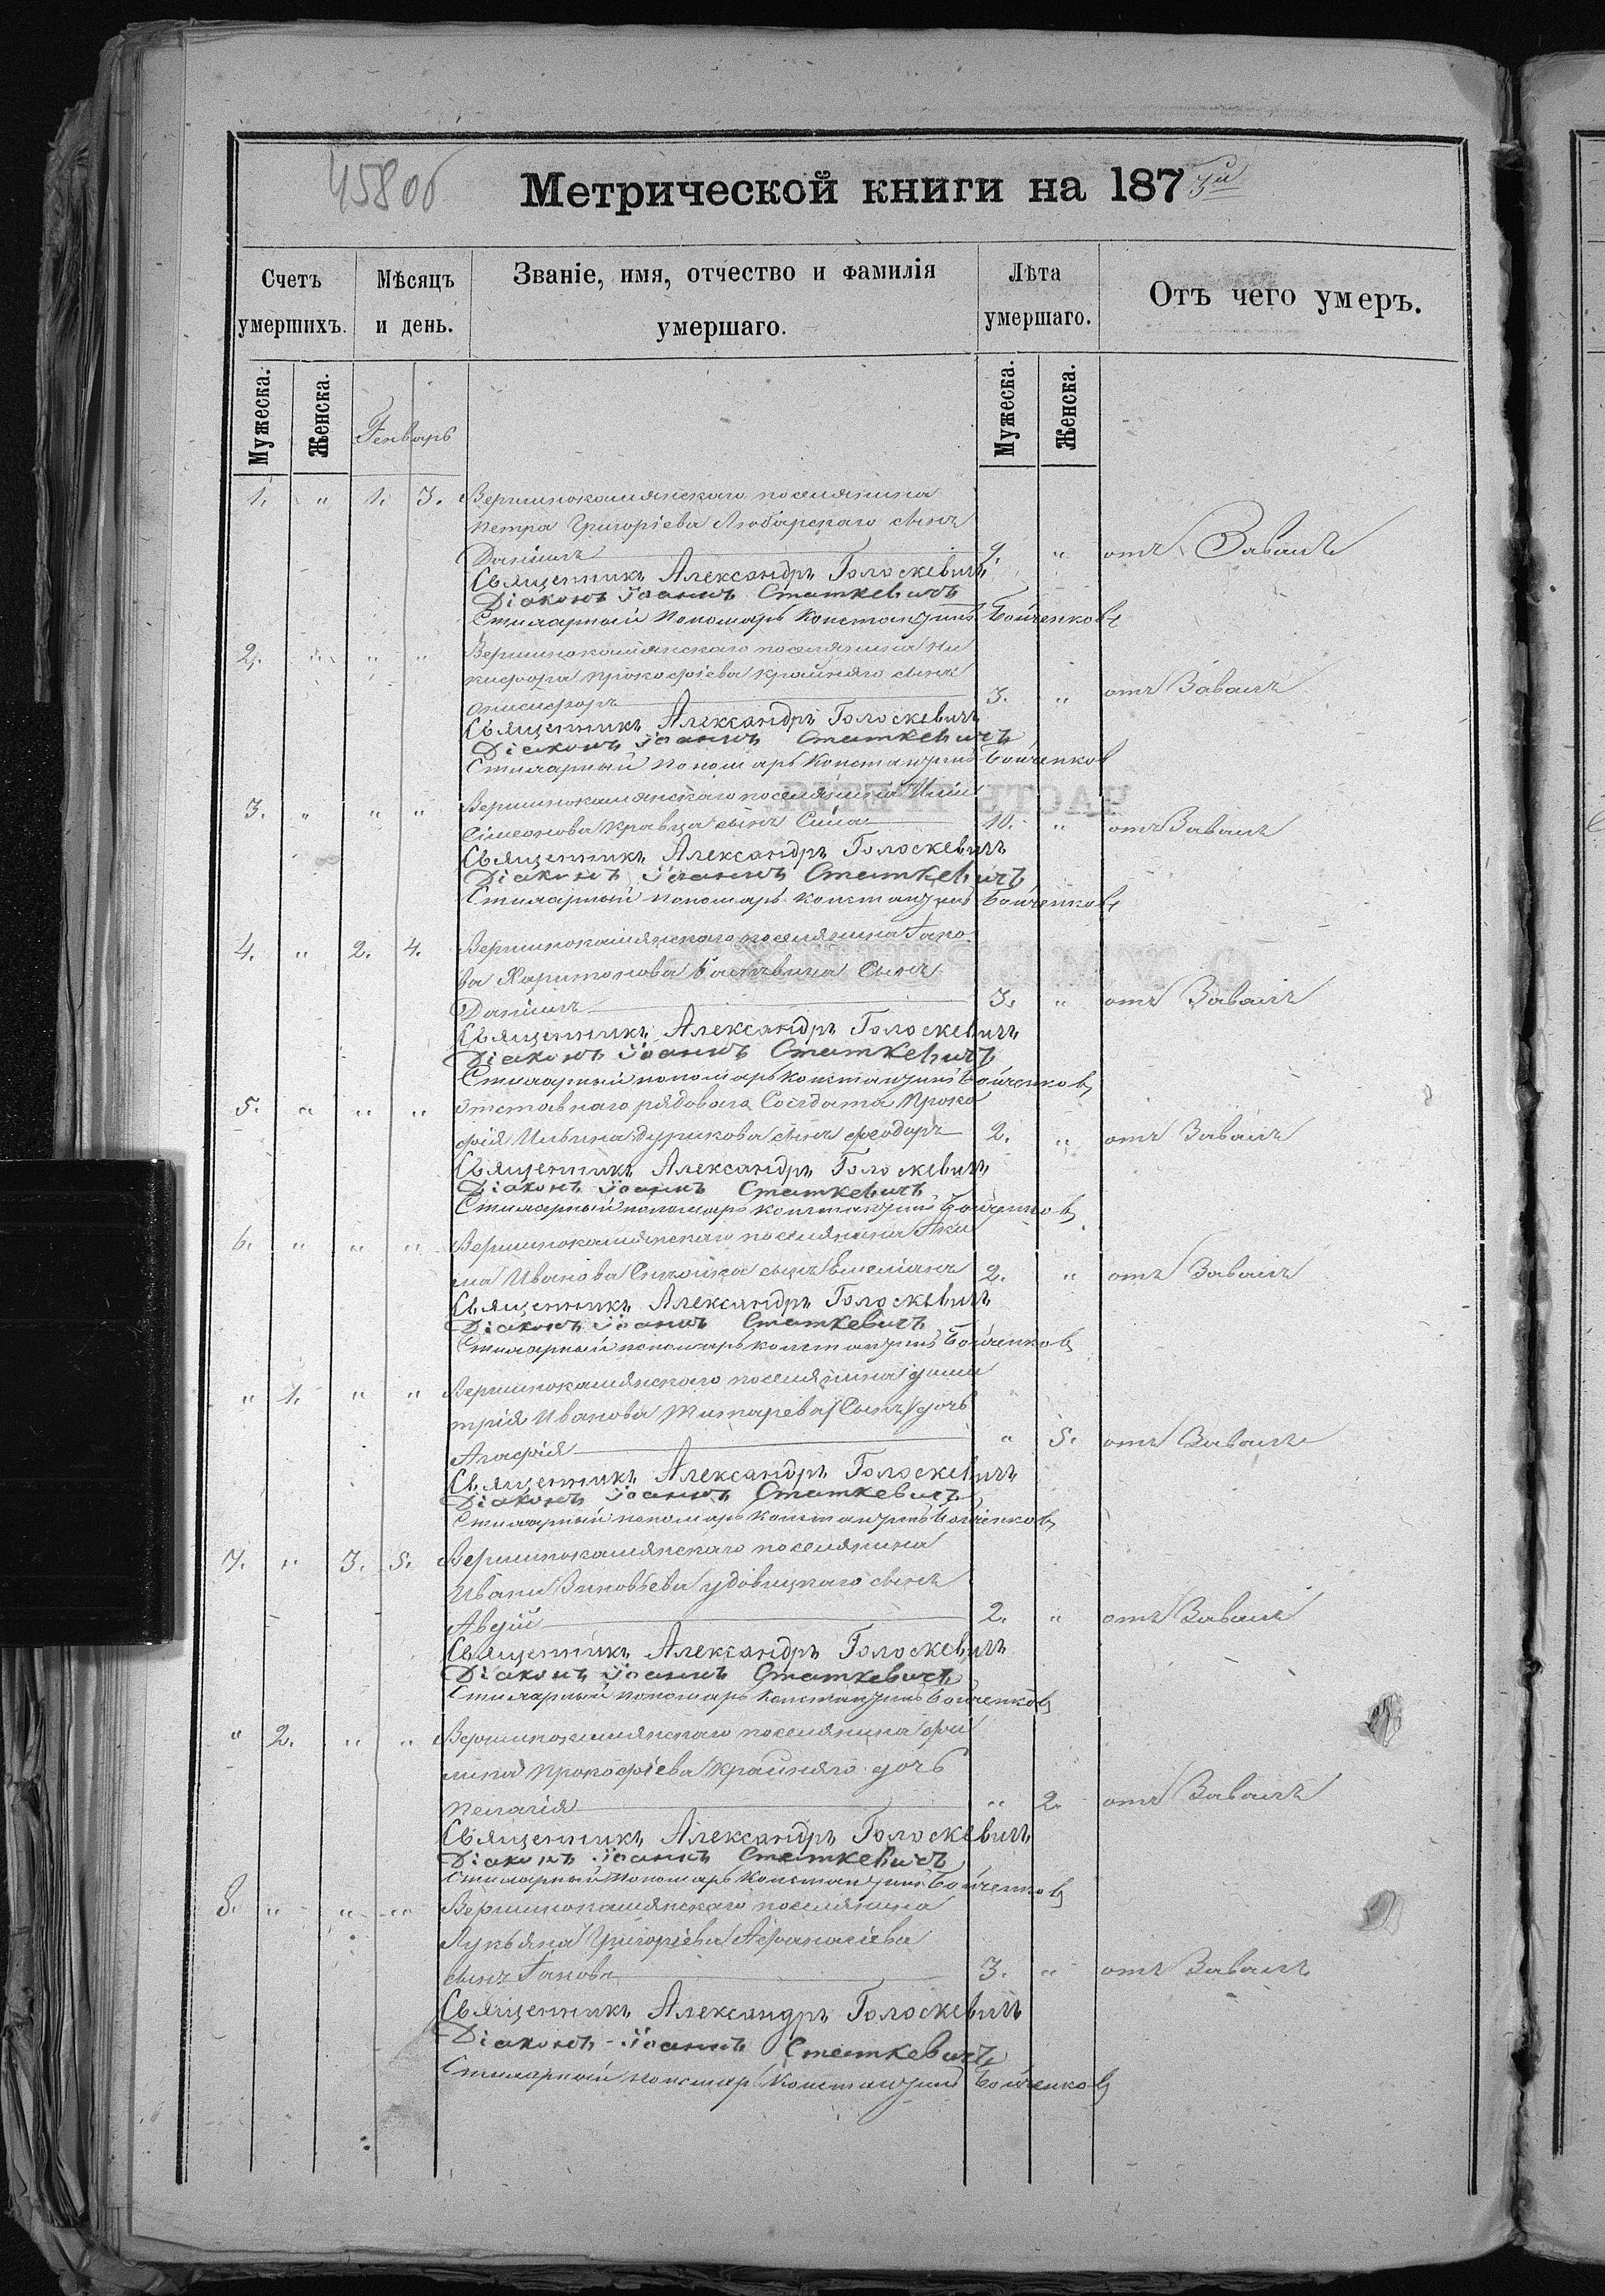 458об
Метрической книги на 187 3й
Счетъ умершихъ.
Мѣсяцъ и день.
Званіе, имя, отчество и фамилія умершаго.
Лѣта умершаго.
Отъ чего умеръ.
Мужеска.
Женска.
Генварь
Мужеска.
Женска.
1. " 1. 3. Вершинокамянскаго поселянина
Петра Григоріева Любарскаго сынъ
Даніилъ 9. " отъ Завалъ
Священникъ Александръ Голоскевичъ
Діаконъ Іоаннъ Статкевичъ
Стихарный пономарь Константинъ Бойченковъ
2. " " " Вершинокамянскаго поселянина Ни
кифора Прокофіева Крайняго сынъ
Онисифоръ 3. " отъ Завалъ
Священникъ Александръ Голоскевичъ
Діаконъ Іоаннъ Статкевичъ
Стихарный пономарь Константинъ Бойченков
3. " " " Вершинокамянскаго поселянина
Сімеонова Кравца сынъ Сила 10. " отъ Завалъ
Священникъ Александръ Голоскевичъ
Діаконъ Іоаннъ Статкевичъ
Стихарный пономарь Константинъ Бойченковъ
4. " 2. 4. Вершинокамянскаго поселянина Іако
ва Харитонова сынъ
Даніилъ 3. " отъ Завалъ
Священникъ Александръ Голоскевичъ
Діаконъ Іоаннъ Статкевичъ
Стихарный пономарь Константинъ Бойченковъ
5. " " " Отставнаго рядоваго Солдата Проко
фія Ильина Дурикова сынъ Феодоръ 2. " отъ Завалъ
Священникъ Александръ Голоскевичъ
Діаконъ Іоаннъ Статкевичъ
Стихарный пономарь Константинъ Бойченковъ
6. " " " Вершинокамянскаго поселянина Аки
ма Иванова сынъ Емеліанъ 2. " отъ Завалъ
Священникъ Александръ Голоскевичъ
Діаконъ Іоаннъ Статкевичъ
Стихарный пономарь Константинъ Бойченковъ
" 1. " " Вершинокамянскаго поселянина Дими
трія Иванова Титарева (Сынъ) дочь
Агафія " 5. отъ Завалъ
Священникъ Александръ Голоскевичъ
Діаконъ Іоаннъ Статкевичъ
Стихарный пономарь Константинъ Бойченковъ
7. " 3. 5. Вершинокамянскаго поселянина
Ивана Зиновьева Удовицкаго сынъ
Авдій 2. " отъ Завалъ
Священникъ Александръ Голоскевичъ
Діаконъ Іоаннъ Статкевичъ
Стихарный пономарь Константинъ Бойченковъ
" 2. " " Вершинокамянскаго поселянина Фи
липа Прокофіева Крайняго дочь
Пелагія " 2. отъ Завалъ
Священникъ Александръ Голоскевичъ
Діаконъ Іоаннъ Статкевичъ
Стихарный пономарь Константинъ Бойченковъ
8. " " " Вершинокамянскаго поселянина
Лукьяна Григоріева Афанасіева
сынъ Іаковъ 3. " отъ Завалъ
Священникъ Александръ Голоскевичъ
Діаконъ Іоаннъ Статкевичъ
Стихарный пономарь Константинъ Бойченковъ